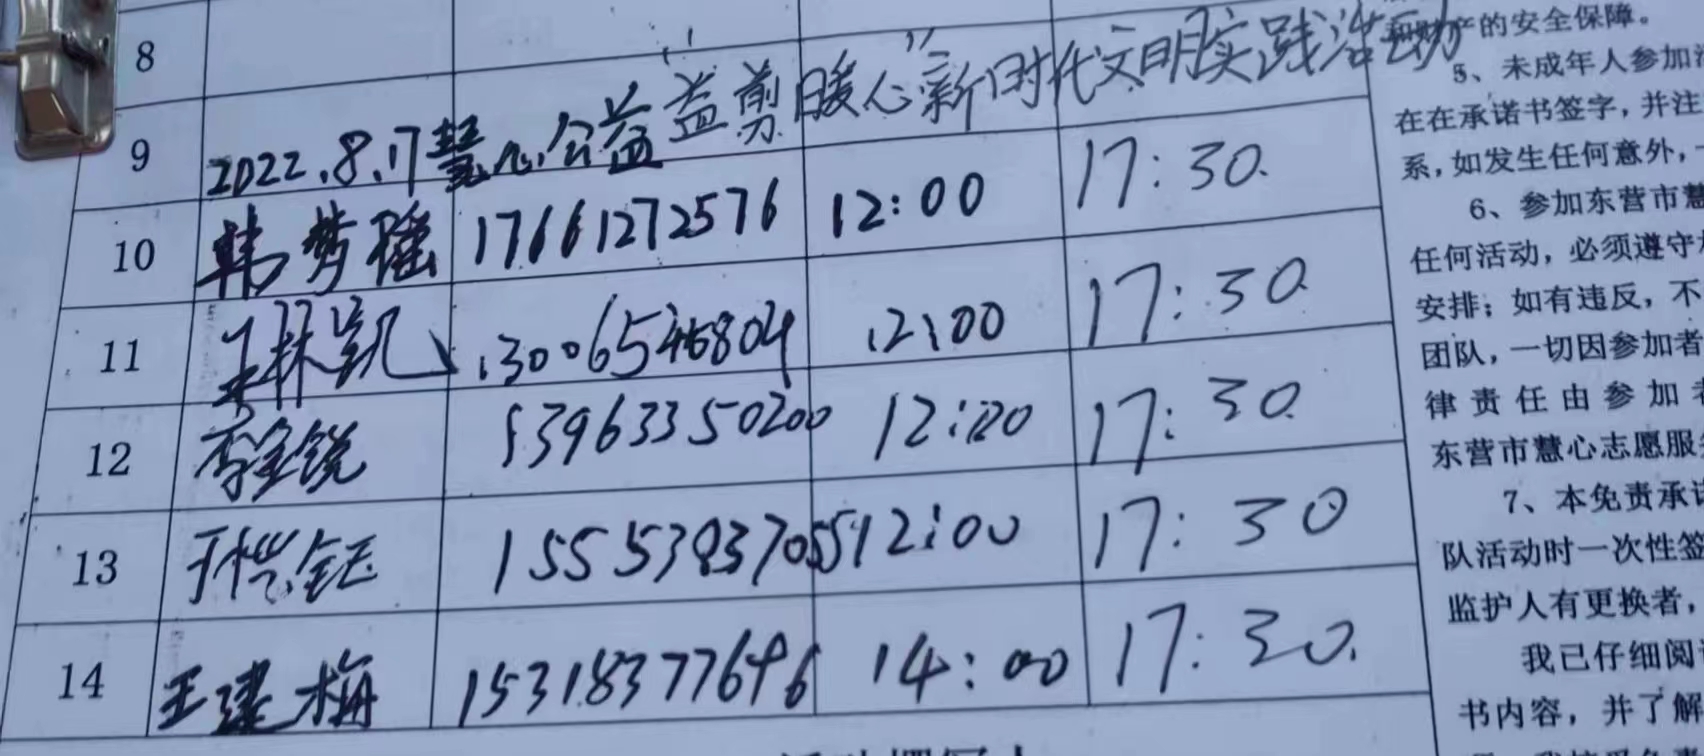 8
9 2022.8.17慧心公益“益剪暖心”新时代文明实践活动
10 韩梦瑶 17661272576 12:00 17:30.
11 王林凯 13006546804 12:00 17:30
12 李金锐 53963350200 12:00 17:30.
13 于恺钰 15553837055 12:00 17:30
14 王建梅 15318377646 14:00 17:30.
产的安全保障。
5、未成年人参加
在在承诺书签字，并注
系，如发生任何意外，
6、参加东营市慧
任何活动，必须遵守
安排；如有违反，不
团队，一切因参加者
律责任由参加者
东营市慧心志愿服
7、本免责承诺
队活动时一次性签
监护人有更换者，
我已仔细阅
书内容，并了解